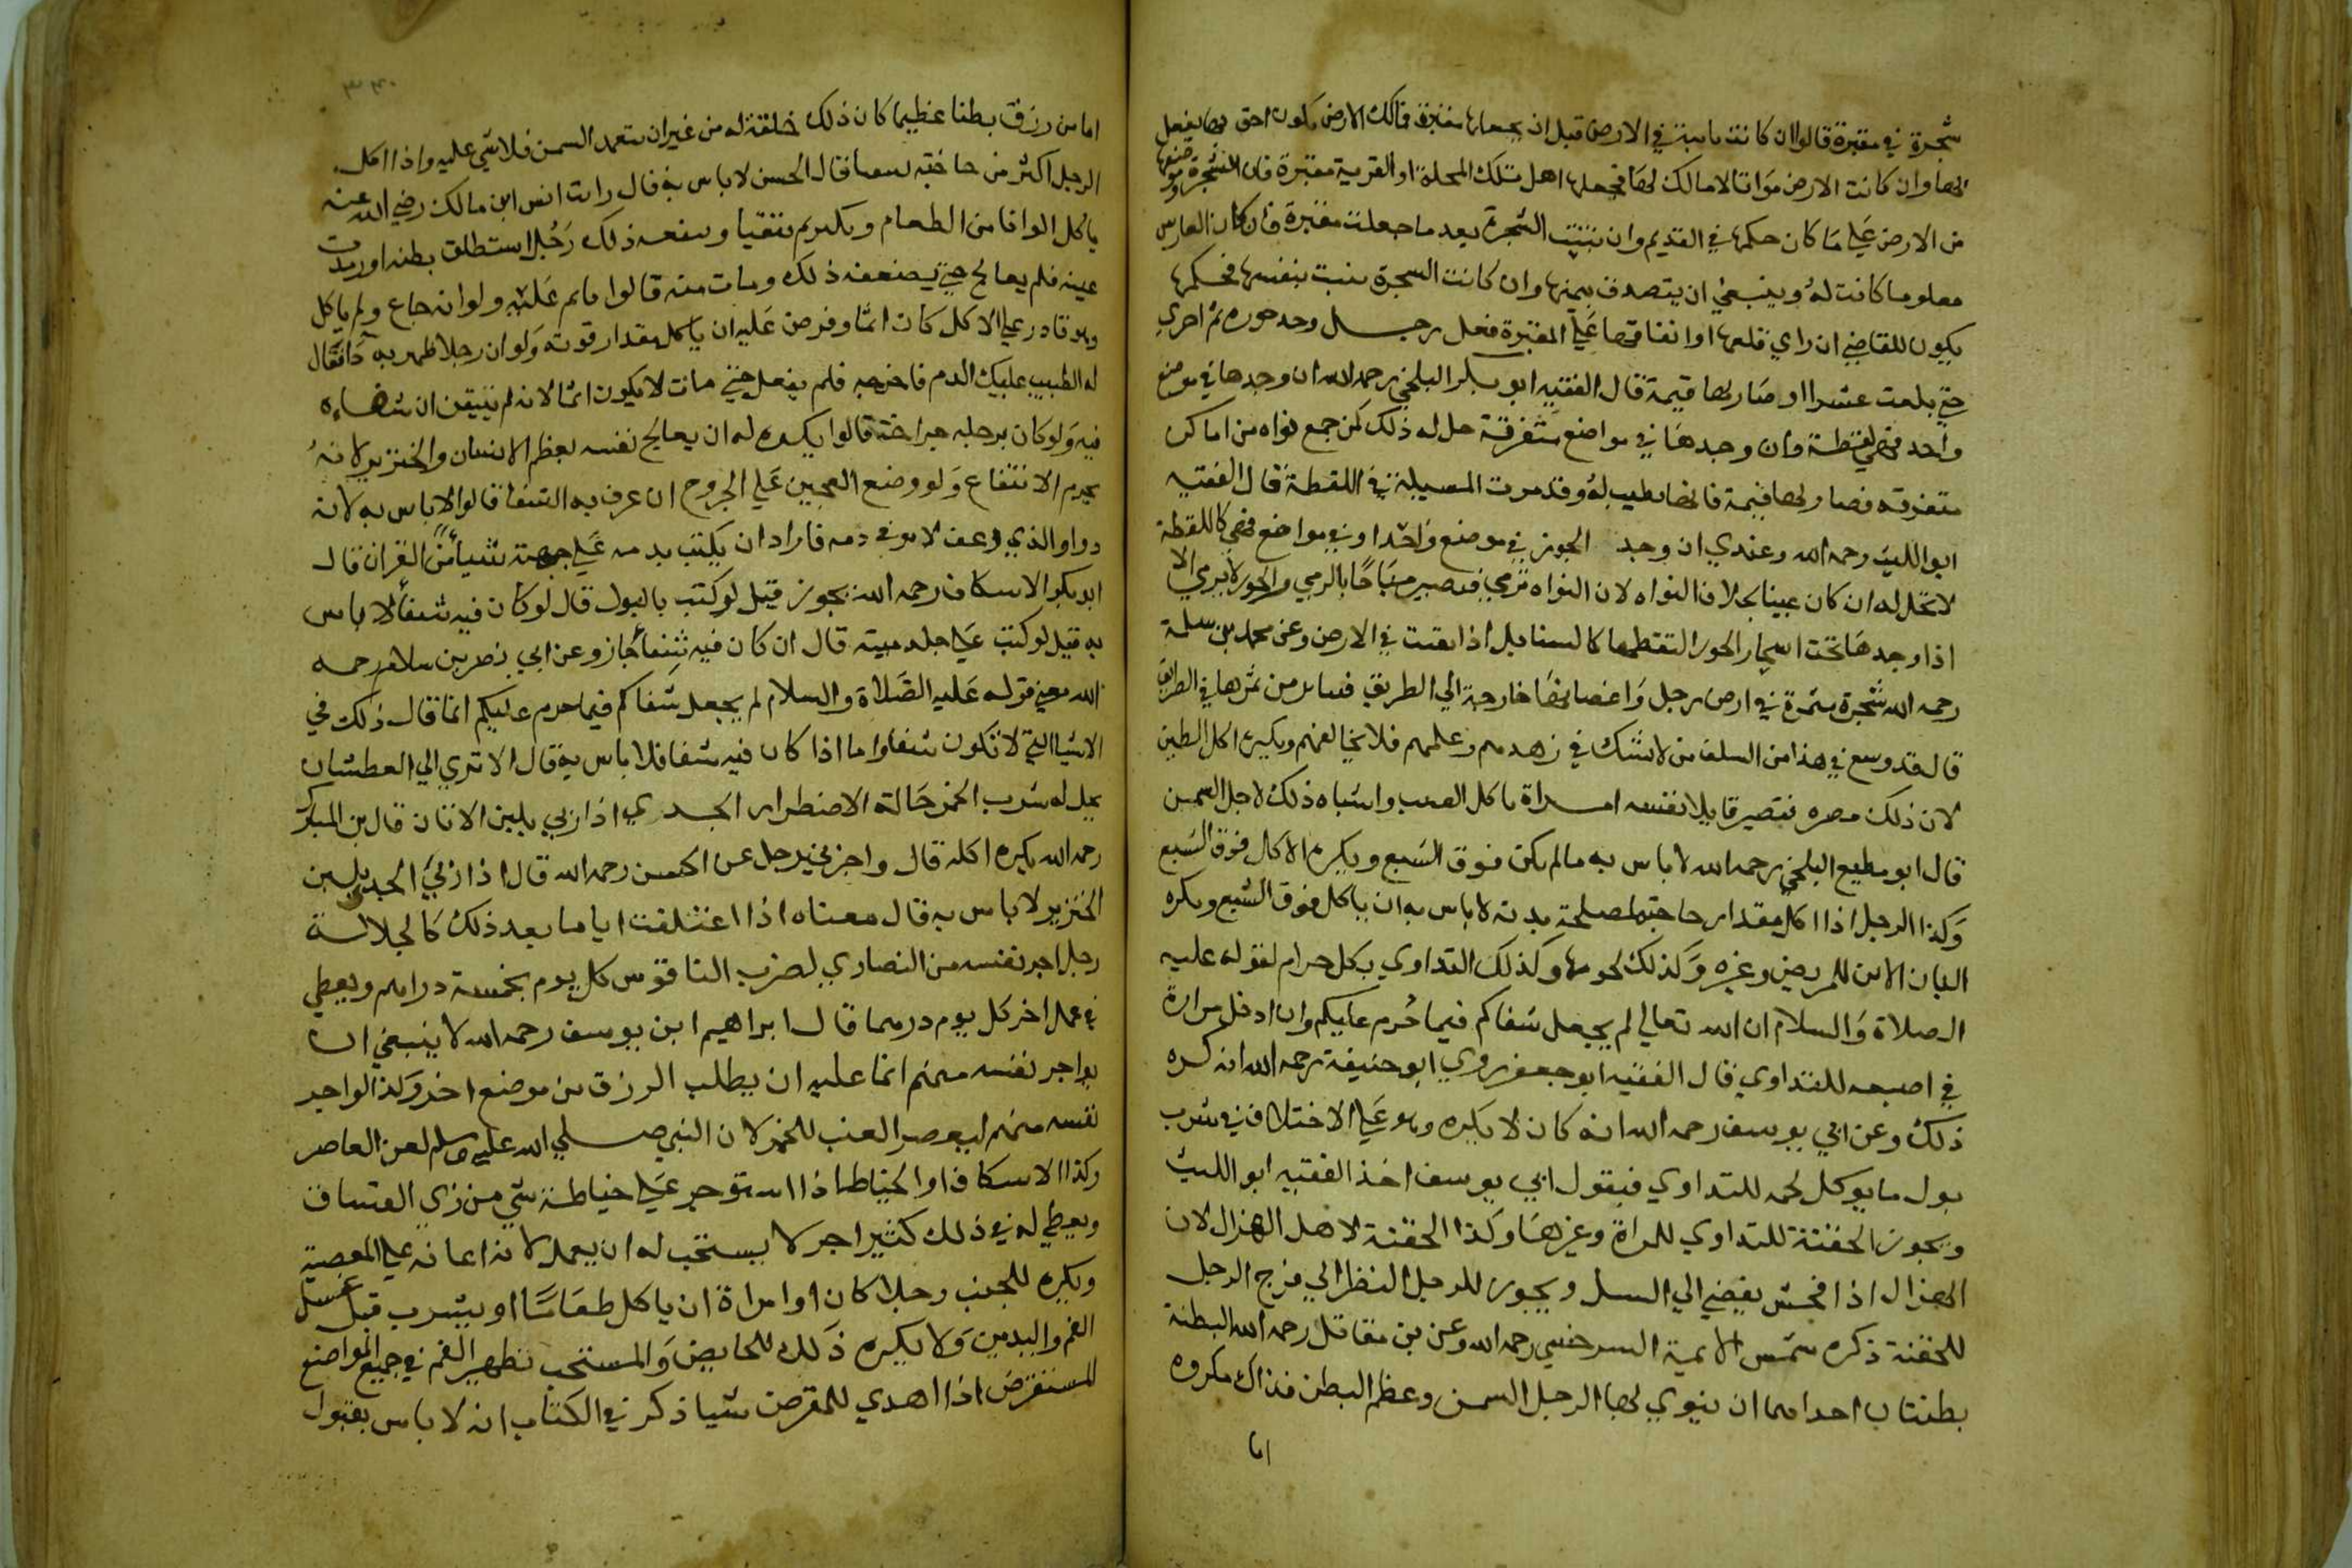 شجرة في مقبرة قالوا ان كانت نابتة في الارض قبل ان يجعلها مقبرة فمالك الارض يكون احق بها يفعل
بها وان كانت الارض مواتا لا مالك لها فجعلها اهل تلك المحلة او القرية مقبرة فان الشجرة وموضعها
من الارض علي ما كان حكمها في القديم وان نبتت الشجرة بعد ما جعلت مقبرة فان كان الغارس
معلوما كانت له وينبغي ان يتصدق بثمنها وان كانت الشجرة نبتت بنفسها فحكمها
يكون للقاضي ان راي قلعها او انفاقها علي المقبرة فعل رجل وجد جوزه ثم اخري
حتي بلغت عشرا او صار لها قيمة قال الفقيه ابو بكر البلخي رحمه الله ان وجدها في موضع
واحد فهي لقطة وان وجدها في مواضع متفرقة حل له ذلك كمن جمع نواه من اماكن
متفرقه فصار لها قيمة فانها يطيب له وقد مرت المسيلة في اللقطة قال الفقيه
ابو الليث رحمه الله وعندي ان وجد الجوز في موضع واحد او في مواضع فهي كاللقطة
لا تحل له ان كان عينا بخلاف النواه لان النواه ترمي فتصير مباحا بالرمي والجوز لا يرمي الا
اذا وجدها تحت اشجار الجوز التقطها كالسنابل اذا بقيت في الارض وعن محمد بن سلمة
رحمه الله شجرة مثمرة في ارض رجل واغصانها خارجة الي الطريق فتناثر من ثمرها في الطريق
قال قد وسع في هذا من السلف من لا شك في زهدهم وعلمهم فلا يخالفهم ويكره اكل الطين
لان ذلك مضره فتصير قاتلا نفسه امراة تاكل الفتيت واشباه ذلك لاجل السمن
قال ابو مطيع البلخي رحمه الله لا باس به ما لم يكن فوق الشبع ويكره الاكل فوق الشبع
وكذا الرجل اذا اكل مقدار حاجته لمصلحة بدنه لا باس به ان ياكل فوق الشبع ويكره
البان الاتن للمريض وغيره وكذلك لحومها وكذلك التداوي بكل حرام لقوله عليه
الصلاة والسلام ان الله تعالي لم يجعل شفاكم فيما حرم عليكم وان ادخل مرارة
في اصبعه للتداوي قال الفقيه ابو جعفر روي ابو حنيفة رحمه الله انه كره
ذلك وعن ابي يوسف رحمه الله انه كان لا يكره وهو علي الاختلاف في شرب
بول ما يوكل لحمه للتداوي فبقول ابي يوسف اخذ الفقيه ابو الليث
ويجوز الحقنة للتداوي للمراة وغيرها وكذا الحقنة لاهل الهزال لان
الهزال اذا فحش يفضي الي السل ويجوز للرجل النظر الي فرج الرجل
للحقنة ذكره شمس الايمة السرخسي رحمه الله وعن بن مقاتل رحمه الله البطنة
بطنتان احداهما ان ينوي بها الرجل السمن وعظم البطن فذاك مكروه
اما
٣٤٠
اما من رزق بطنا عظيما كان ذلك خلقة له من غير ان يتعمد السمن فلا شي عليه واذا اكل
الرجل اكثر من حاجته ليتقيا قال الحسن لا باس به قال رايت انس ابن مالك رضي الله عنه
ياكل الوانا من الطعام ويكثر ثم يتقيا وينفعه ذلك رجل استطلق بطنه او رمدت
عينه فلم يعالج حتي يضعفه ذلك ومات منه قالوا ما ثم عليه ولو انه جاع ولم ياكل
وهو قادر علي الاكل كان اثما وفرض عليه ان ياكل مقدار قوته ولو ان رجلا ظهر به دا فقال
له الطبيب عليك الدم فاخرجه فلم يفعل حتي مات لا يكون اثما لانه لم يتيقن ان شفاءه
فيه ولو كان برجله جراحة قالوا يكره له ان يعالج نفسه بعظم الانسان والخنزير لانه
يحرم الانتفاع ولو وضع العجين علي الجروح ان عرف به الشفا قالوا لا باس به لانه
دوا والذي رعف لا يرقي دمه فاراد ان يكتب بدمه علي جبهته شيا من القران قال
ابو بكر الاسكاف رحمه الله يجوز قيل لو كتب بالبول قال لو كان فيه شفا لا باس
به قيل لو كتب علي جلد ميتة قال ان كان فيه شفا جاز وعن ابي نصر بن سلام رحمه
الله معني قوله عليه الصلاة والسلام لم يجعل شفاكم فيما حرم عليكم انما قال ذلك في
الاشيا التي لا تكون شفا واما اذا كان فيه شفا فلا باس به قال الا تري الي العطشان
يحل له شرب الخمر حالة الاضطرار الجدي اذا ربي بلبن الاتان قال بن المبارك
رحمه الله يكره اكله قال واخبرني رجل عن الحسن رحمه الله قال اذا ربي الجدي بلبن
الخنزير لا باس به قال معناه اذا اعتلفت اياما بعد ذلك كالجلالة
رجل اجر نفسه من النصاري لضرب الناقوس كل يوم بخمسة دراهم ويعطي
في عمل اخر كل يوم درهما قال ابراهيم ابن يوسف رحمه الله لا ينبغي ان
يواجر نفسه منهم انما عليه ان يطلب الرزق من موضع اخر وكذا لو اجر
نفسه منهم ليعصر العنب للخمر لان النبي صلي الله عليه وسلم لعن العاصر
وكذا الاسكاف او الخياط اذا استوجر علي خياطة شي من زي الفساق
ويعطي له في ذلك كثير اجر لا يستحب له ان يعمل لانه اعانه علي المعصية
ويكره للجنب رجلا كان او امراة ان ياكل طعاما او يشرب قبل غسل
الفم واليدين ولا يكره ذلك للحايض والمستحب تطهير الفم في جميع المواضع
المستقرض اذا اهدي للمقرض شيا ذكر في الكتاب انه لا باس بقبول